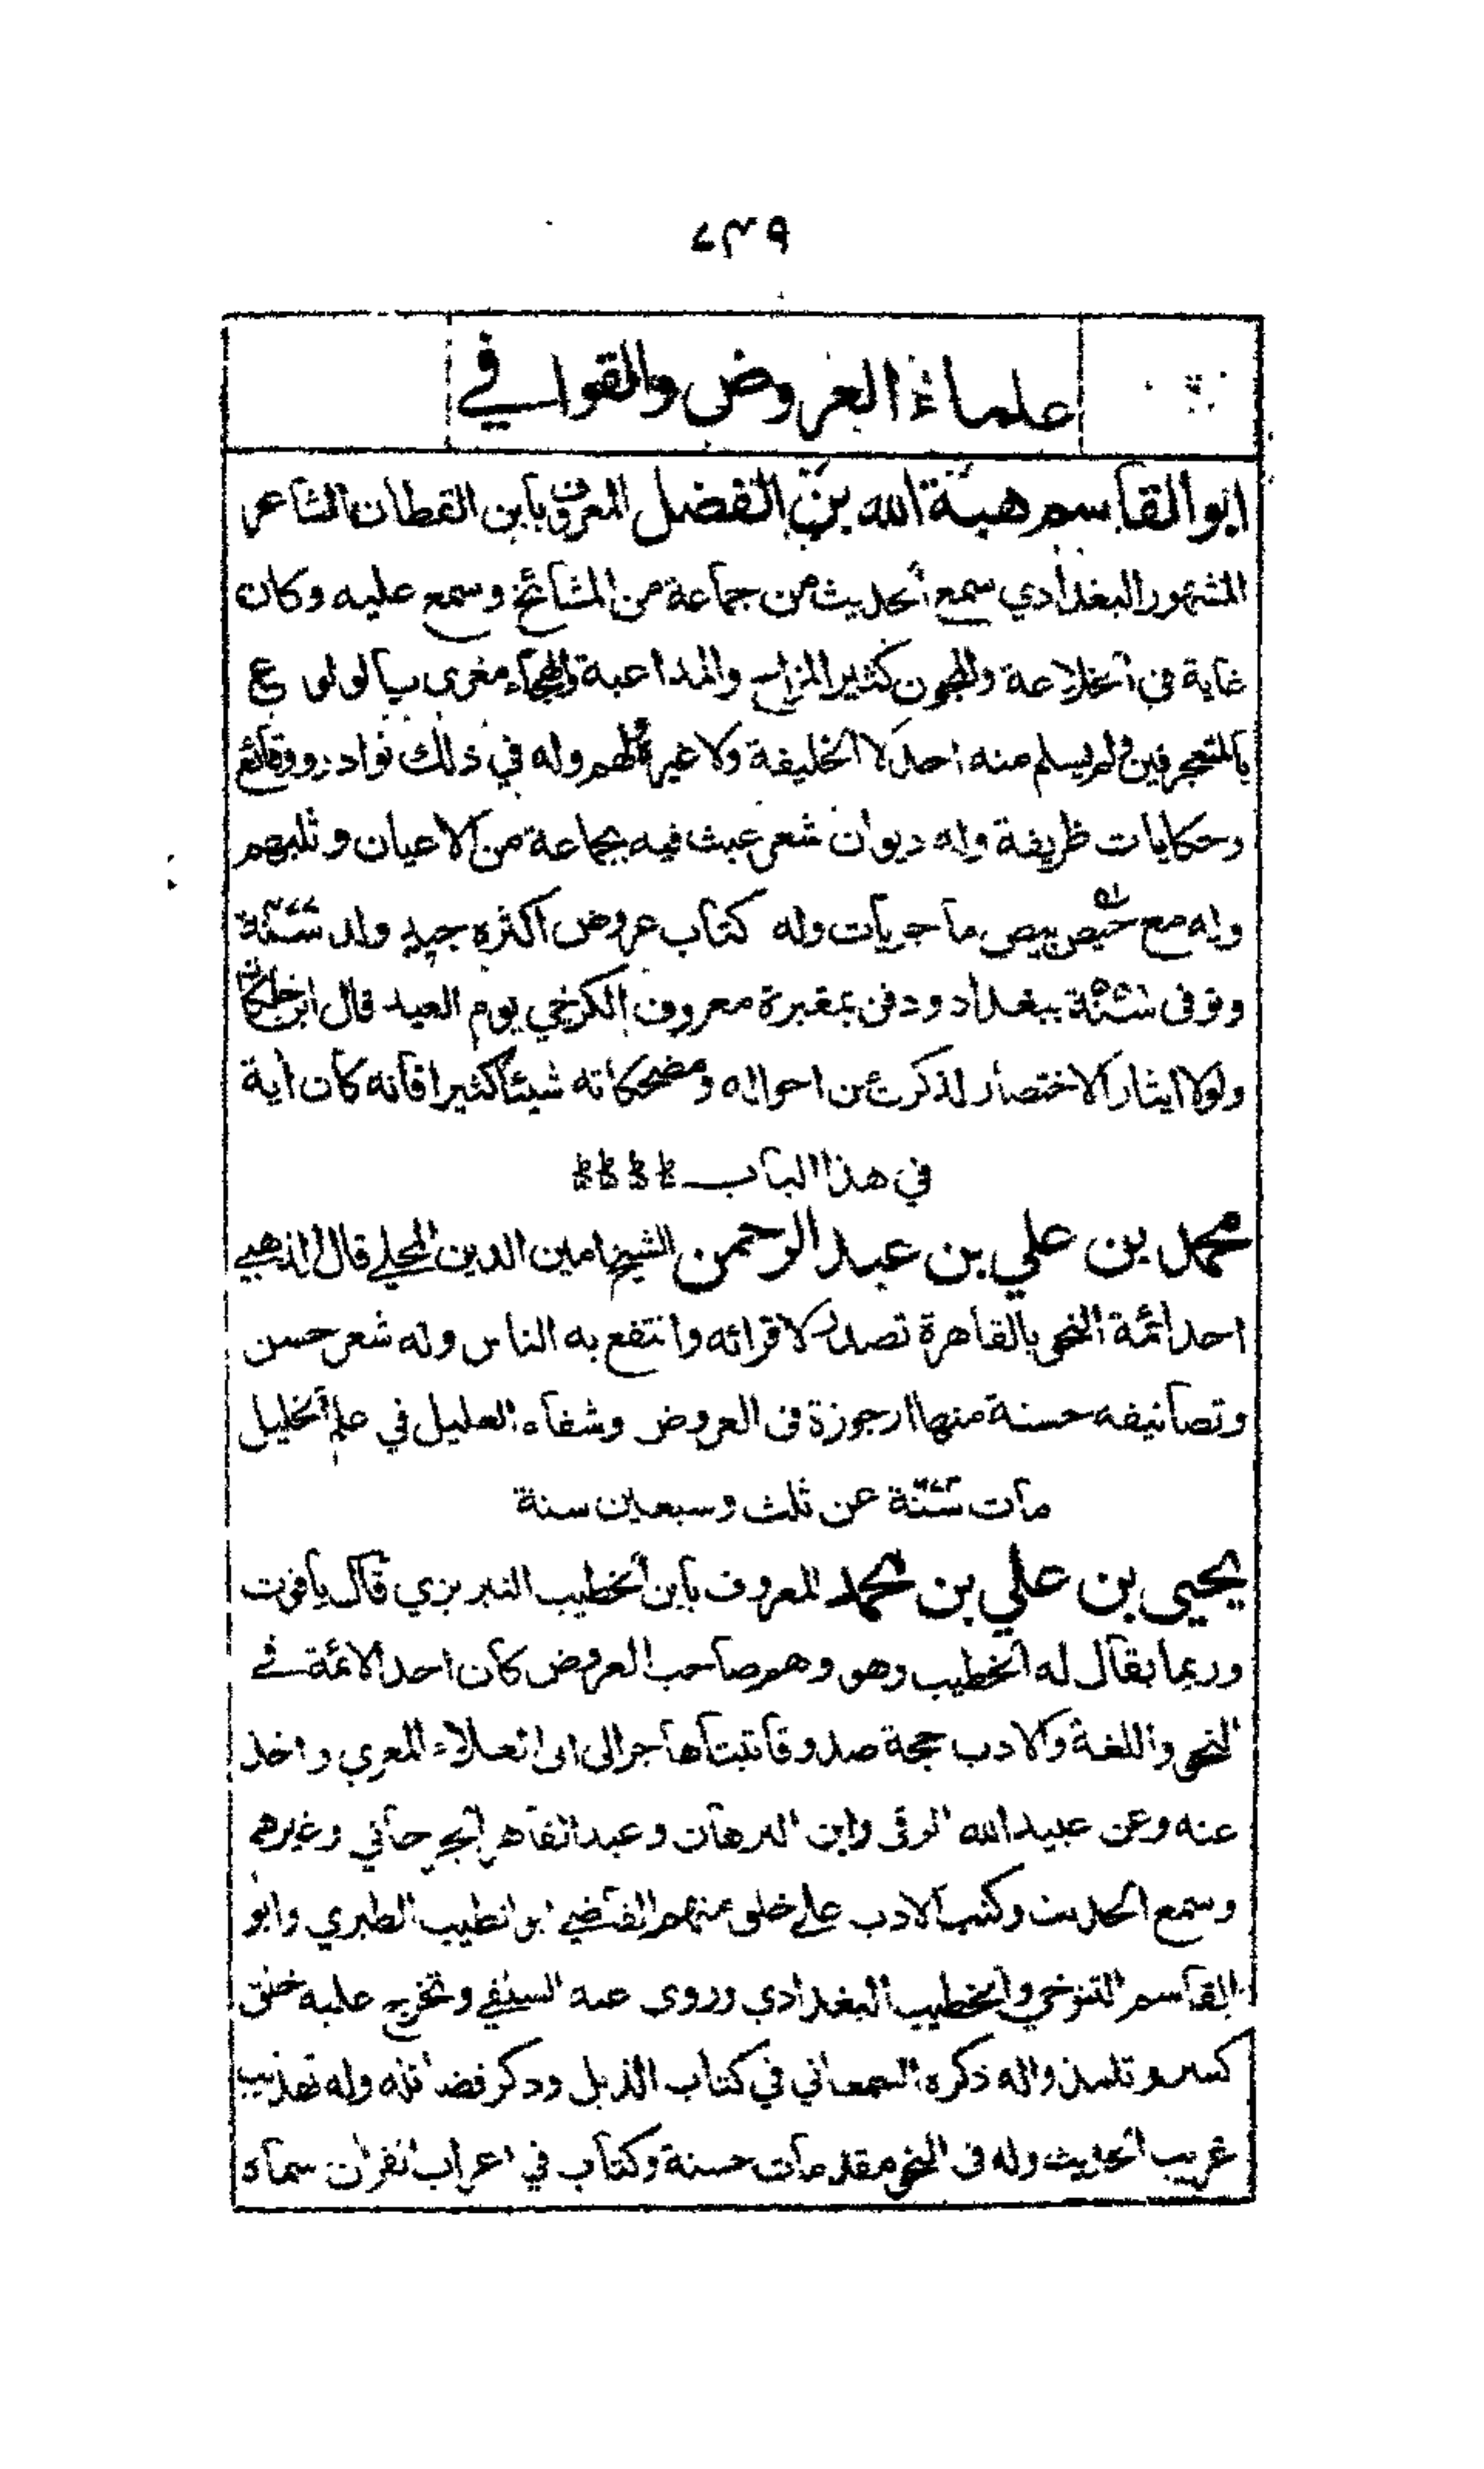 علماء العروض والقوافي
ابو القاسم هبة الله بن الفضل المعروف بابن القطان الشاعر
المشهور البغدادي سمع الحديث من جماعة من المشائخ وسمع عليه وكان
غاية في الخلاعة والمجون كثير المزاح والمداعبة والهجاء مغرى بالولوع
بالمتعجرفين ولم يسلم منه احد لا الخليفة ولا غيره لهم وله في ذلك نوادر ووقائع
وحكايات ظريفة وله ديوان شعر عبث فيه بجماعة من الاعيان وثلبهم
وله مع حيص بيص ماجريات وله كتاب عروض اكثره جيد ولد
وتوفى ببغداد ودفن بمقبرة معروف الكرخي يوم العيد قال ابن خلكان
ولولا ايثار الاختصار لذكرت من احواله ومضحكاته شيئا كثيرا فانه كان اية
في هذا الباب
محمد بن علي بن عبد الرحمن الشيخ امين الدين المحلي قال الذهبي
احد ائمة النحو بالقاهرة تصدر لاقرائه وانتفع به الناس وله شعر حسن
وتصانيفه حسنة منها ارجوزة في العروض وشفاء العليل في علم الخليل
مات عن ثلث وسبعين سنة
يحيى بن علي بن محمد المعروف بابن الخطيب التبريزي قال ياقوت
وربما يقال له الخطيب وهو وهم صاحب العروض كان احد الائمة في
النحو واللغة والادب حجة صدوقا ثبتا هاجر الى ابى العلاء المعري واخذ
عنه وعن عبيد الله الرقى وابن الدهان وعبد القاهر الجرجاني وغيرهم
وسمع الحديث وكتب الادب على خلق منهم القاضي ابو الطيب الطبري وابو
القاسم التنوخي والخطيب البغدادي وروى عنه السلفي وتخرج عليه خلق
كثير وتلمذ واله ذكره السمعاني في كتاب الذيل وذكر فضائله وله تهذيب
غريب الحديث وله في النحو مقدمات حسنة وكتاب في اعراب القران سماه